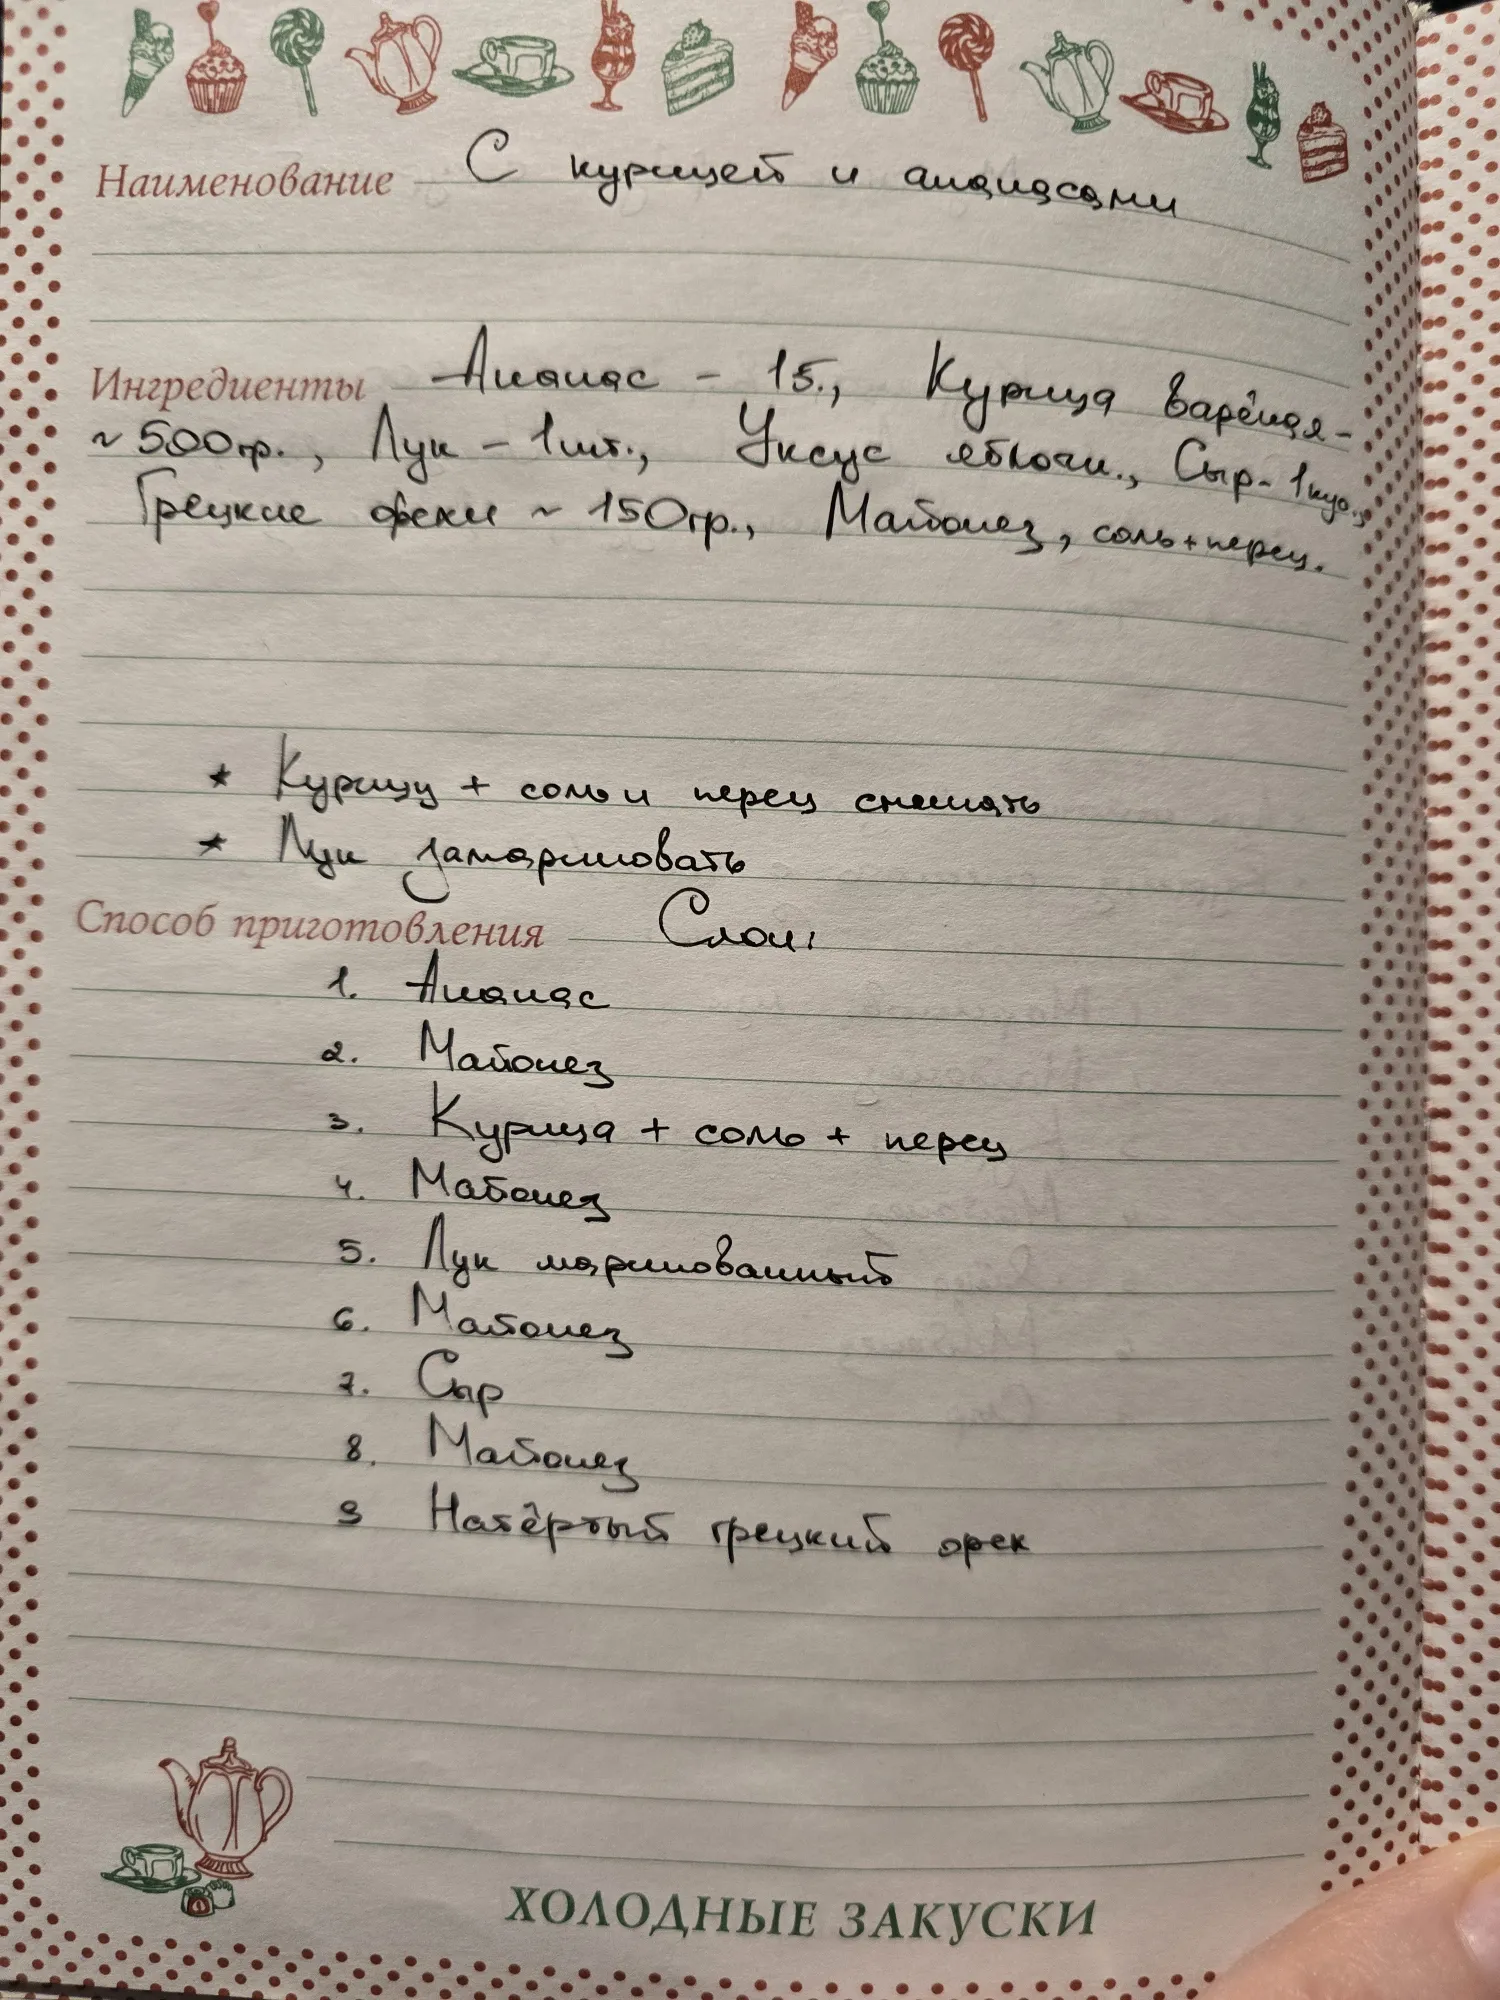 Наименование С курицей и ананасами
Ингредиенты Ананас - 1б., Курица варёная -
~ 500гр., Лук - 1шт., Уксус яблочн., Сыр - 1кус.,
Грецкие орехи ~ 150гр., Майонез, соль + перец.
* Курицу + соль и перец смешать
* Лук замариновать
Способ приготовления Слои:
1. Ананас
2. Майонез
3. Курица + соль + перец
4. Майонез
5. Лук маринованный
6. Майонез
7. Сыр
8. Майонез
9 Натёртый грецкий орех
ХОЛОДНЫЕ ЗАКУСКИ